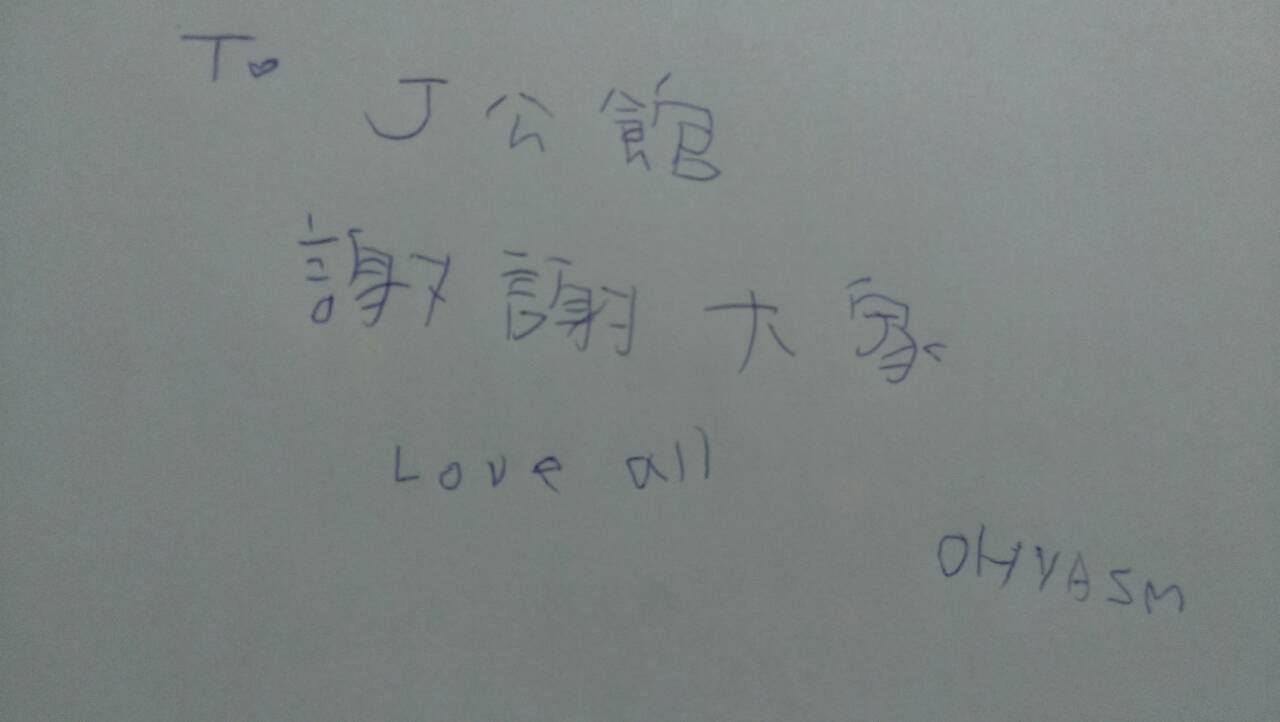 To
J公館
謝謝大家
Love all
OHYASM